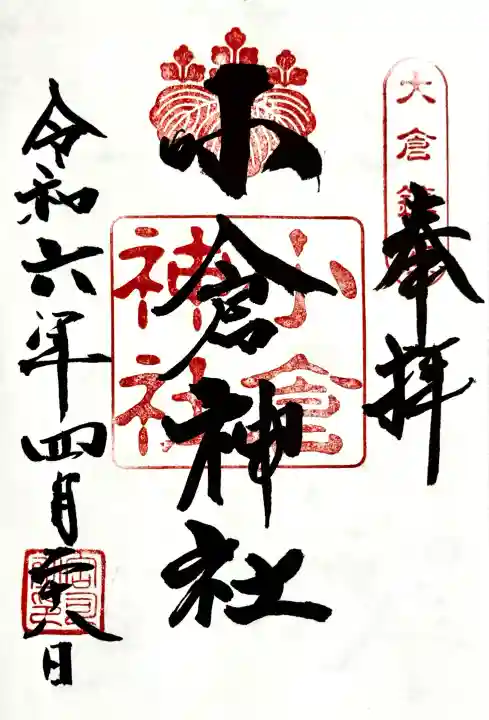 大倉
奉拝
小倉神社
小倉
神社
令和六年四月二十八日